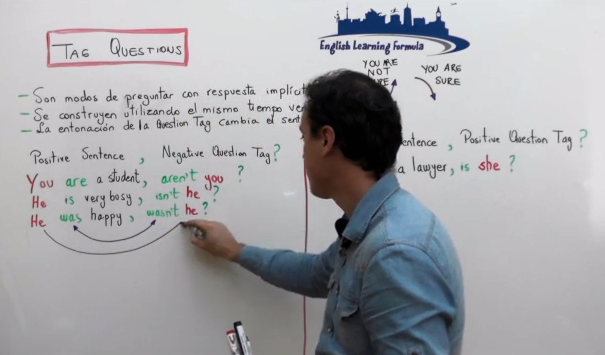 TAG QUESTIONS
English Learning Formula
YOU ARE NOT
YOU ARE
SURE
- Son modos de preguntar con respuesta
- Se construyen utilizando el mismo tiempo
- La entonación de la Question Tag cambia el
Positive Sentence , Negative Question Tag?
You are a student, aren't you ?
He is very bosy , isn't he ?
He was happy , wasn't he ?
, Positive Question Tag ?
a lawyer, is she ?